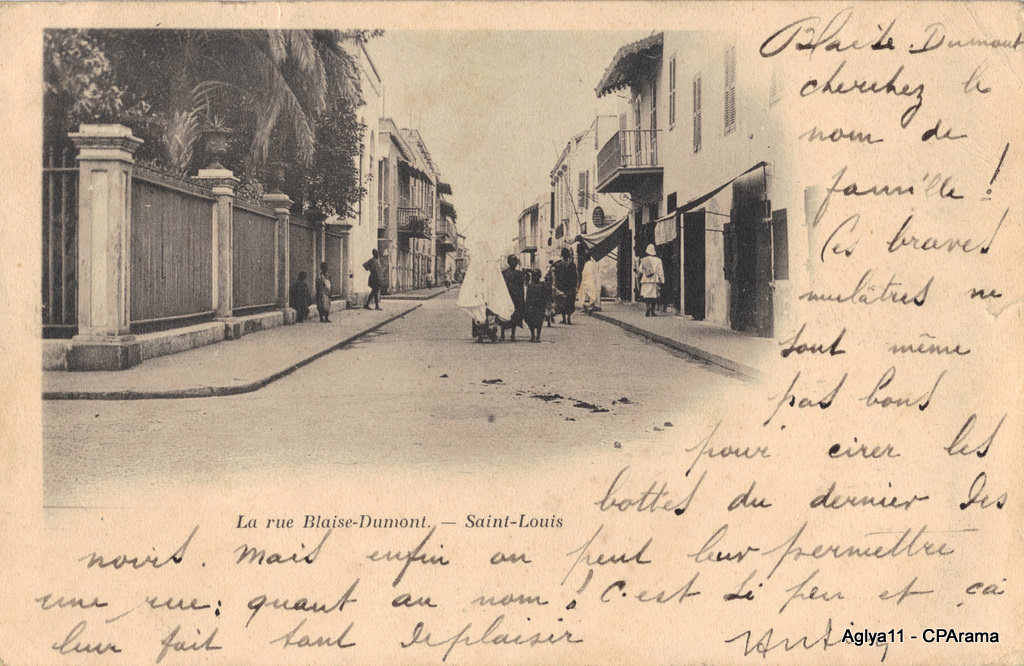 Blaise-Dumont
cherchez le
nom de
famille !
Ces braves
mulâtres ne
sont même
pas bons
pour cirer les
bottes du dernier des
noirs. Mais enfin on peut leur permettre
une rue: quant au nom! C'est si peu et ça
leur fait tant deplaisir
La rue Blaise-Dumont. — Saint-Louis
Aglya11 - CPArama